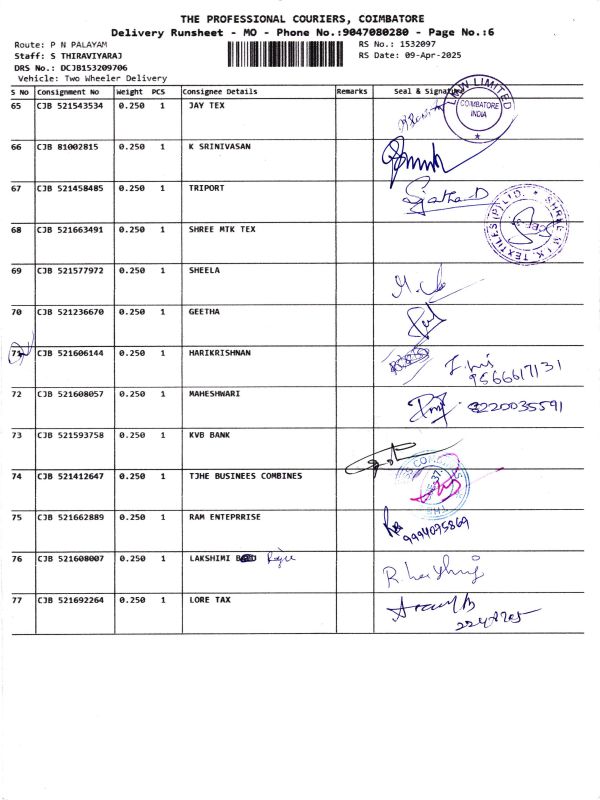 THE PROFESSIONAL COURIERS, COIMBATORE
Delivery Runsheet - MO - Phone No.:9047080280 - Page No.:6
Route: P N PALAYAM RS No.: 1532097
Staff: S THIRAVIYARAJ RS Date: 09-Apr-2025
DRS No.: DCJB153209706
Vehicle: Two Wheeler Delivery
S No Consignment No Weight PCS Consignee Details Remarks Seal & Signature
65 CJB 521543534 0.250 1 JAY TEX
LIMITED
COIMBATORE
INDIA
66 CJB 81002815 0.250 1 K SRINIVASAN
67 CJB 521458485 0.250 1 TRIPORT
68 CJB 521663491 0.250 1 SHREE MTK TEX
TEXTILES (P) LTD. * SHREE M.T.K.
69 CJB 521577972 0.250 1 SHEELA
70 CJB 521236670 0.250 1 GEETHA
71 CJB 521606144 0.250 1 HARIKRISHNAN
9566617131
72 CJB 521608057 0.250 1 MAHESHWARI 8220035591
73 CJB 521593758 0.250 1 KVB BANK
74 CJB 521412647 0.250 1 TJHE BUSINEES COMBINES
75 CJB 521662889 0.250 1 RAM ENTEPRRISE
9994095869
76 CJB 521608007 0.250 1 LAKSHIMI
77 CJB 521692264 0.250 1 LORE TAX